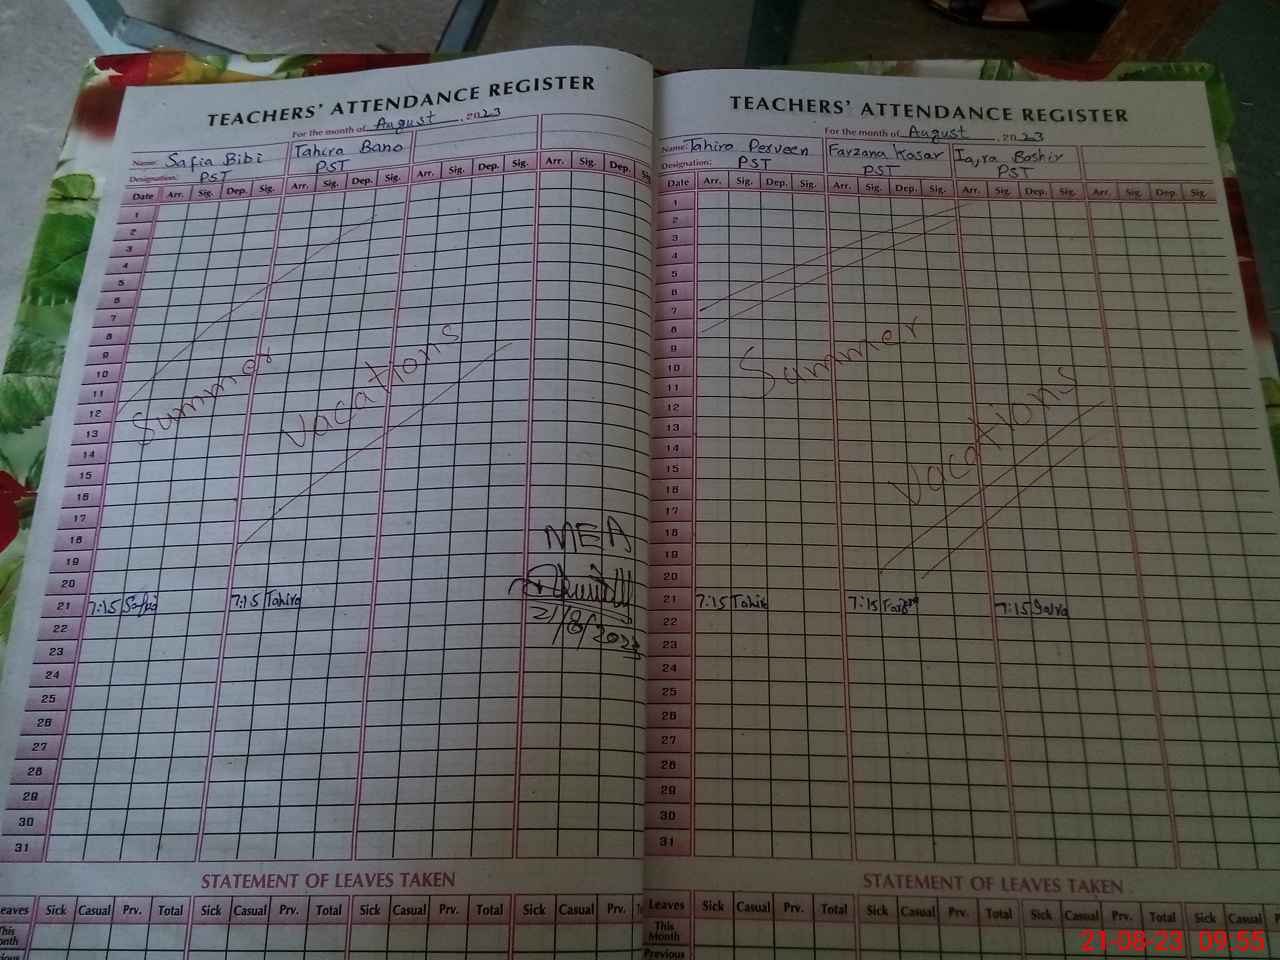 TEACHERS' ATTENDANCE REGISTER
For the month of August, 2023
Name: Safia Bibi Tahira Bano
Designation: PST PST
Date Arr. Sig. Dep. Sig. Arr. Sig. Dep. Sig. Arr. Sig. Dep. Sig. Arr. Sig. Dep. Sig.
1
2
3
4
5
6
7
8
9
10
11
12
13
14
15
16
17
18
19
20
21 7:15 Safia 7:15 Tahira
22
23
24
25
26
27
28
29
30
31
Summer Vacations
MEA
21/8/2023
STATEMENT OF LEAVES TAKEN
Leaves Sick Casual Prv. Total Sick Casual Prv. Total Sick Casual Prv. Total Sick Casual Prv.
This
Month
TEACHERS' ATTENDANCE REGISTER
For the month of August, 2023
Name: Tahira Perveen Farzana Kosar Iqra Bashir
Designation: PST PST PST
Date Arr. Sig. Dep. Sig. Arr. Sig. Dep. Sig. Arr. Sig. Dep. Sig. Arr. Sig. Dep. Sig.
1
2
3
4
5
6
7
8
9
10
11
12
13
14
15
16
17
18
19
20
21 7:15 Tahir 7:15 7:15
22
23
24
25
26
27
28
29
30
31
Summer
Vacations
STATEMENT OF LEAVES TAKEN
Leaves Sick Casual Prv. Total Sick Casual Prv. Total Sick Casual Prv. Total Sick Casual
This
Month
Previous
21-08-23 09:55